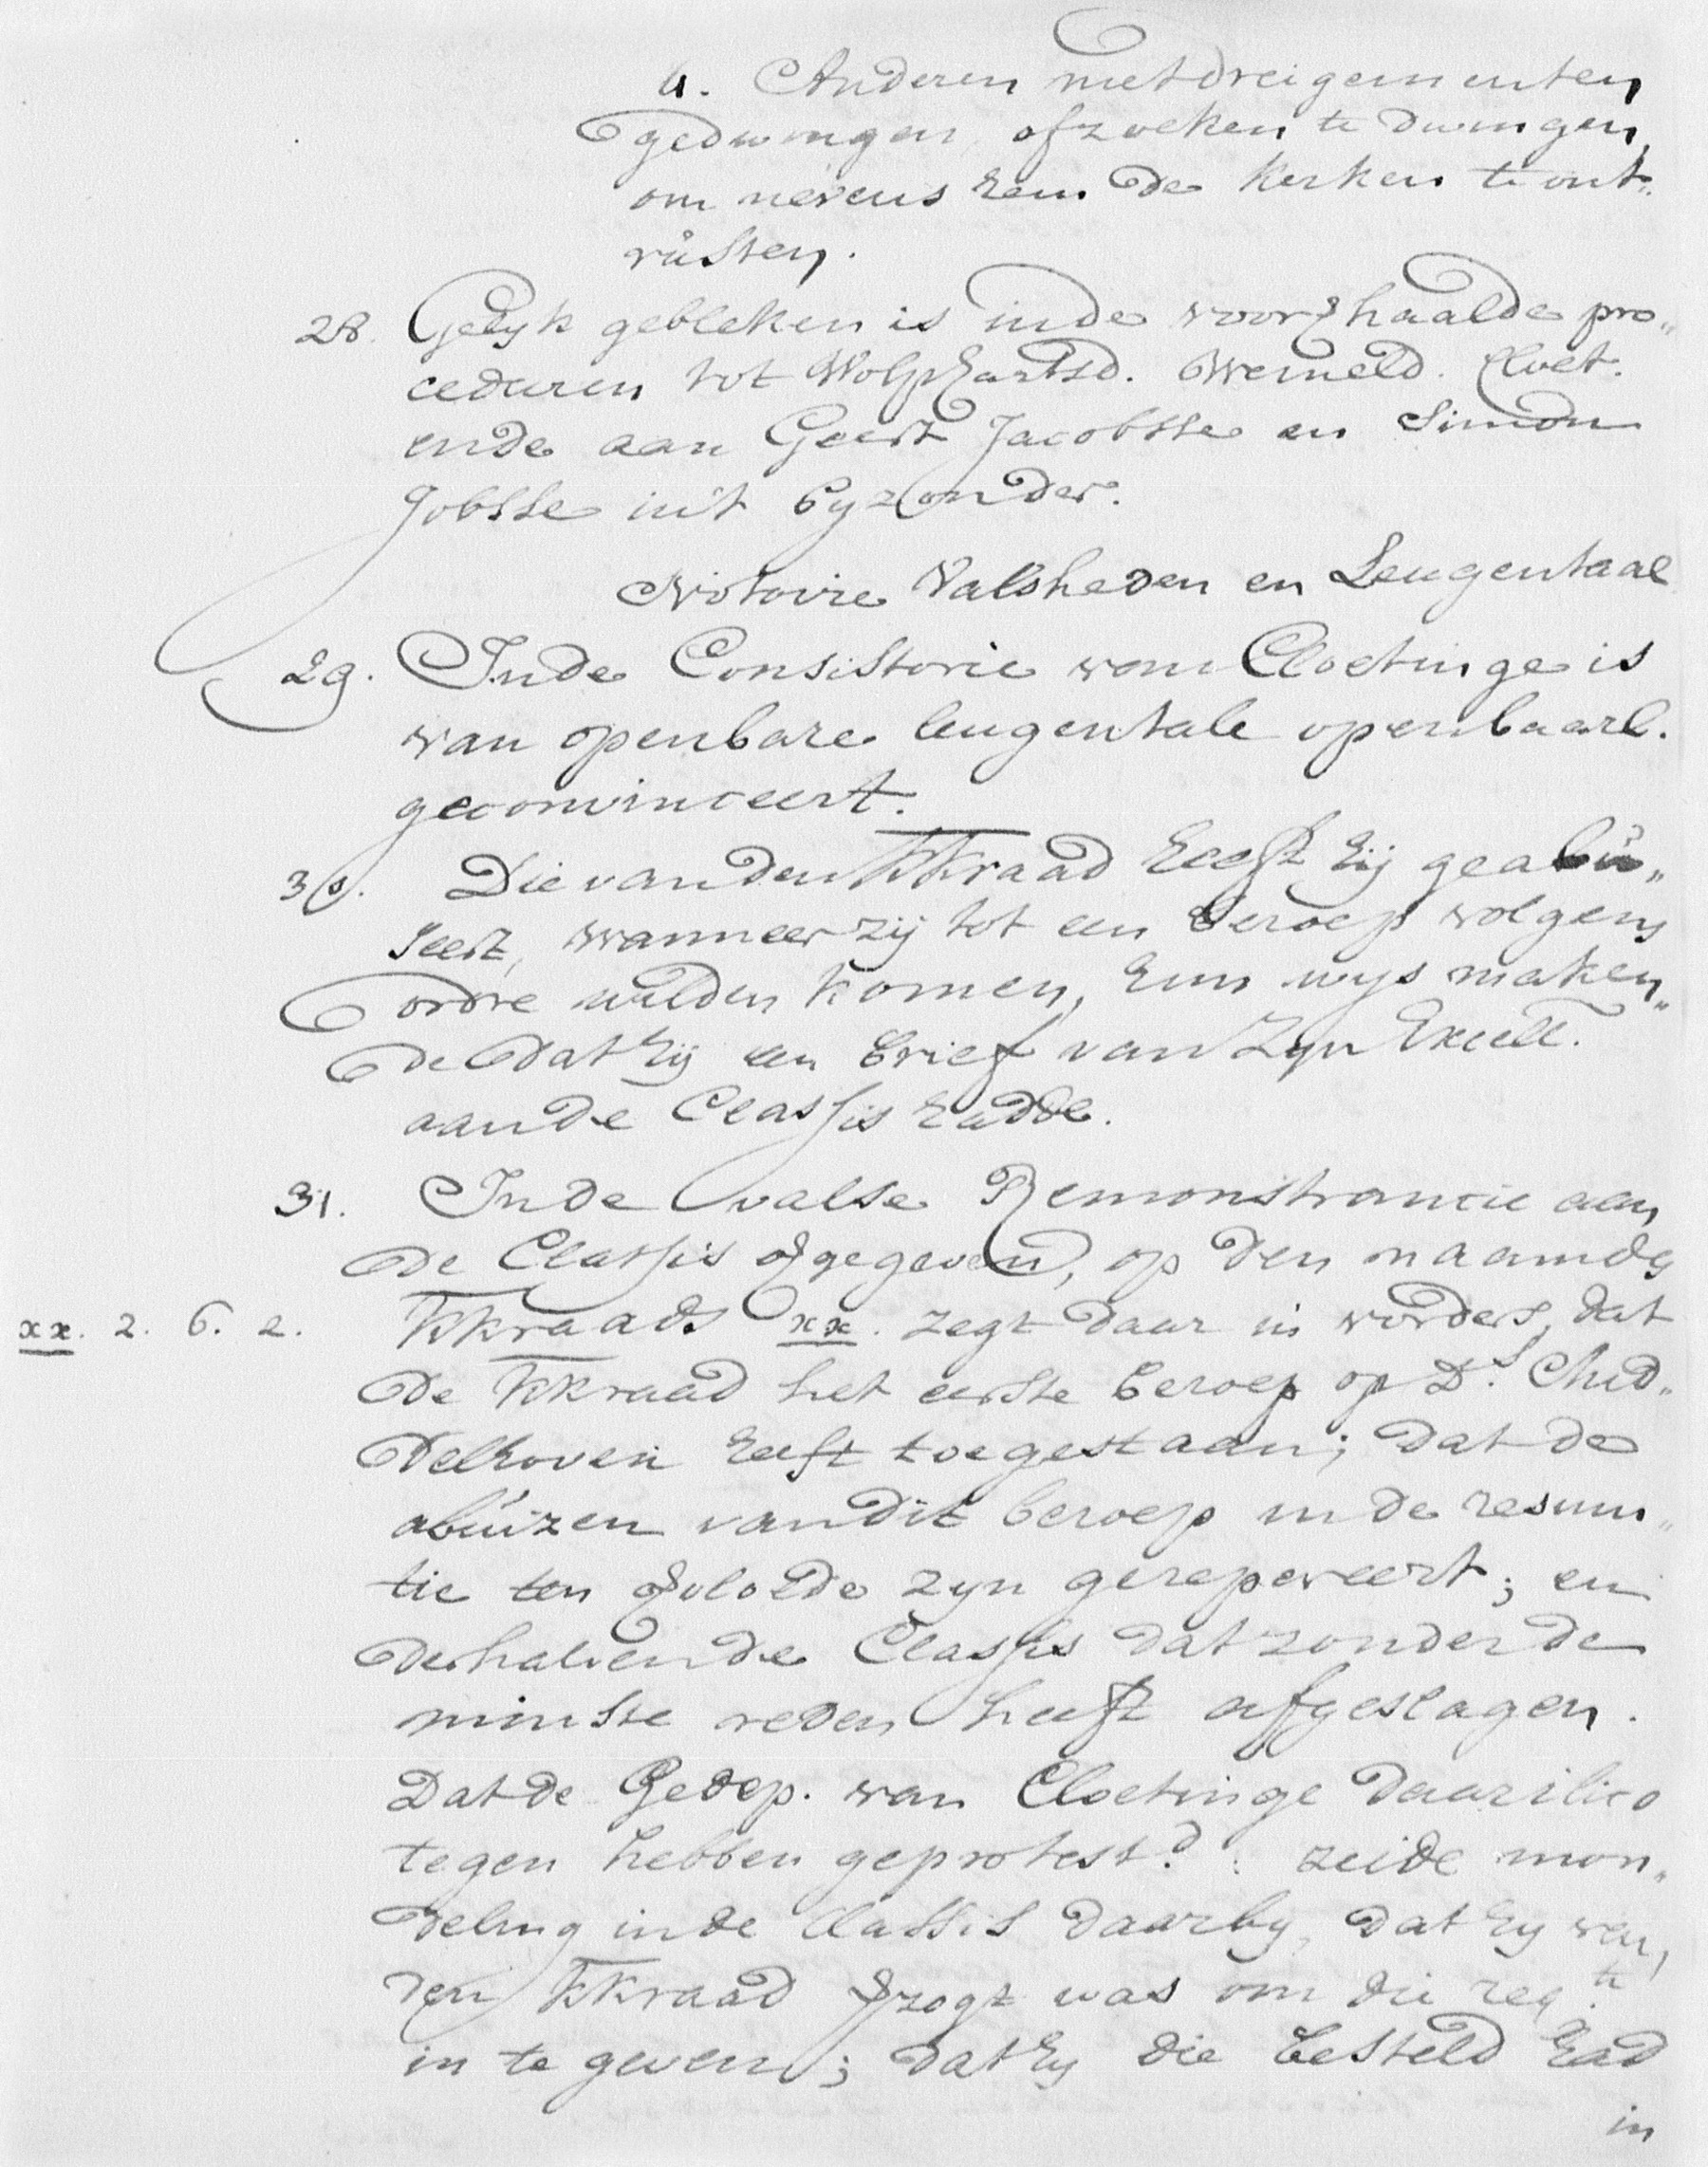 u. Anderen met dreigementen
gedwongen, of zoeken te dwingen,
om nevens hem de Kerken te ont„
rusten.
28. Gelyk gebleken is in de voorshaalde pro„
ceduren tot Wolphartsd. Wemeld. Cloet.
ende aan Geert Jacobsse en Simon
Jobsse in't byzonder.
Notoire Valsheden en Leugentaal
29. In de Consistorie van Cloetinge is
van openbare leugentale openbaarl.
geconvinceert.
30. Die van den KKraad heeft hij geabu„
seert, wanneer zij tot een beroep volgens
ordre wilden komen, hun wys maken„
de dat hij een brief van Zyn Excell.
aan de Classis hadde.
31. In de valse Remonstrancie aan
de Classis gegeven, op den naam des
KKraads xx. zegt daar in vorders, dat
xx. 2. 6. 2.
de KKraad het eerste beroep op Ds. Chid„
delhoven heeft toegestaan; dat de
abuizen van dit beroep in de resum„
tie ten volde zyn gerepareert; en
derhalven de Classis dat zonder de
minste reden heeft afgeslagen.
Dat de Gedep. van Cloetinge daar ilico
tegen hebben geprotestd.: zeide mon„
deling in de Classis daarby, dat hy van
den KKraad gezogt was om die reqte.
in te geven; dat hy die besteld had
in